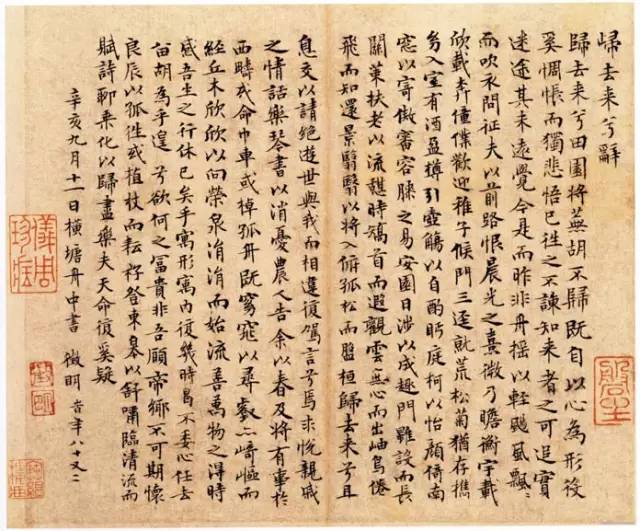 歸去来兮辭
歸去来兮田園將蕪胡不歸既自以心為形役
奚惆悵而獨悲悟已往之不諫知来者之可追實
迷途其未遠覺今是而昨非舟摇以輕颺風飄飄
而吹衣問征夫以前路恨晨光之熹微乃瞻衡宇載
欣載奔僮僕歡迎稚子候門三逕就荒松菊猶存攜
幼入室有酒盈樽引壺觴以自酌眄庭柯以怡顏倚南
窓以寄傲審容膝之易安園日涉以成趣門雖設而長
關策扶老以流憩時矯首而遐觀雲無心而出岫鳥倦
飛而知還景翳翳以將入撫孤松而盤桓歸去来兮且
息交以請絕遊世與我而相違復駕言兮焉求悅親戚
之情話樂琴書以消憂農人告余以春及將有事於
西疇或命巾車或棹孤舟既窈窕以尋壑亦崎嶇而
經丘木欣欣以向榮泉涓涓而始流善萬物之得時
感吾生之行休已矣乎寓形寓内復幾時曷不委心任去
留胡為乎遑遑兮欲何之富貴非吾願帝鄉不可期懷
良辰以孤往或植杖而耘耔登東皋以舒嘯臨清流而
賦詩聊乘化以歸盡樂夫天命復奚疑
辛亥九月十一日橫塘舟中書 徵明 時年八十又二
儀周珍藏